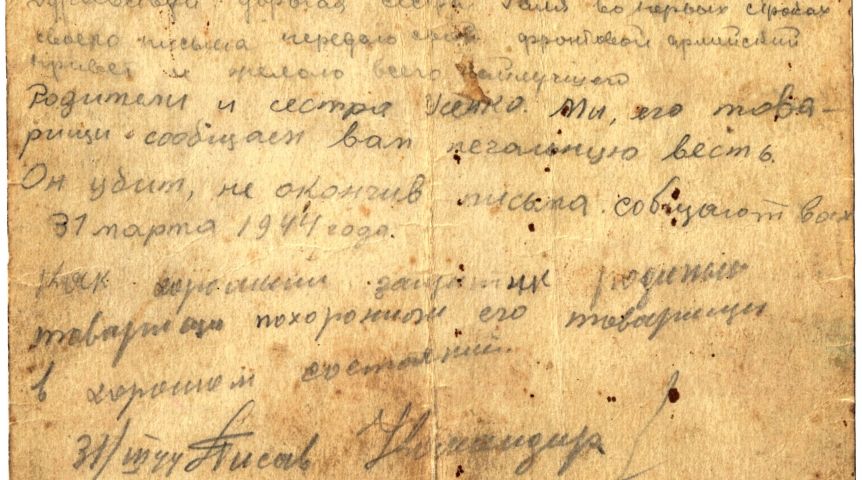 дорогая сестра Галя во первых строках
своего письма передаю свой фронтовой армейский
привет и желаю всего наилучшего
Родители и сестра Усенко. Мы, его това-
рищи сообщаем вам печальную весть.
Он убит, не окончив письма. собщают вам
31 марта 1944 года.
Как хороший защитник родины
товарищи похоронили его товарищи
в хорошом состояний.
31/III 44 Писав Командир